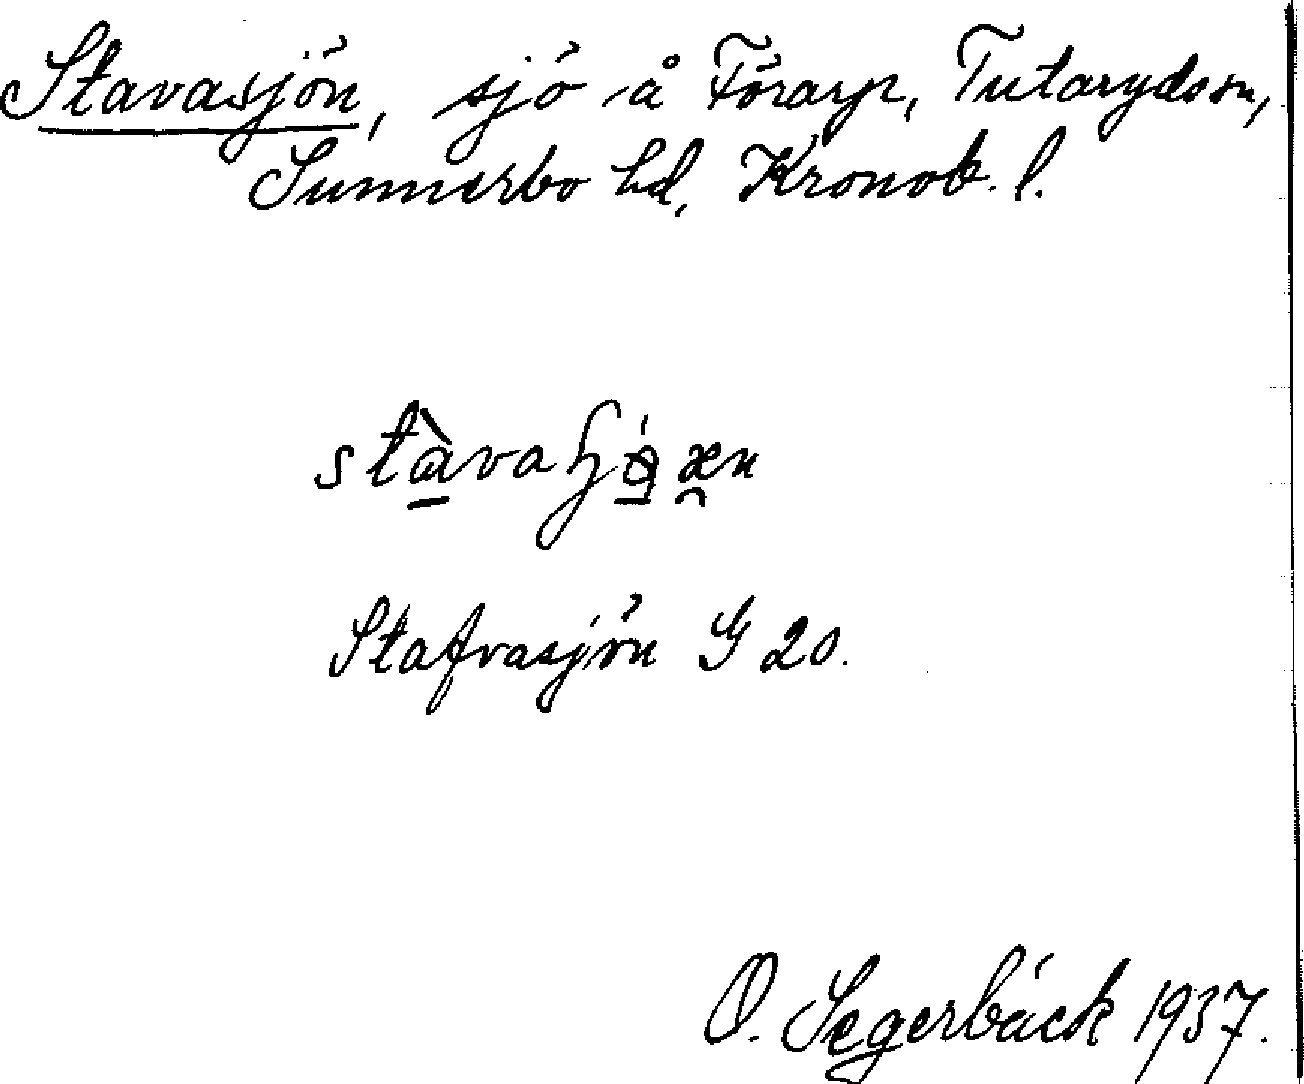 Stavasjön, sjö å Förarp, Tutaryds sn,
Sunnerbo hd, Kronob. l.
Stafvasjön G 20.
O. Segerbäck 1937.